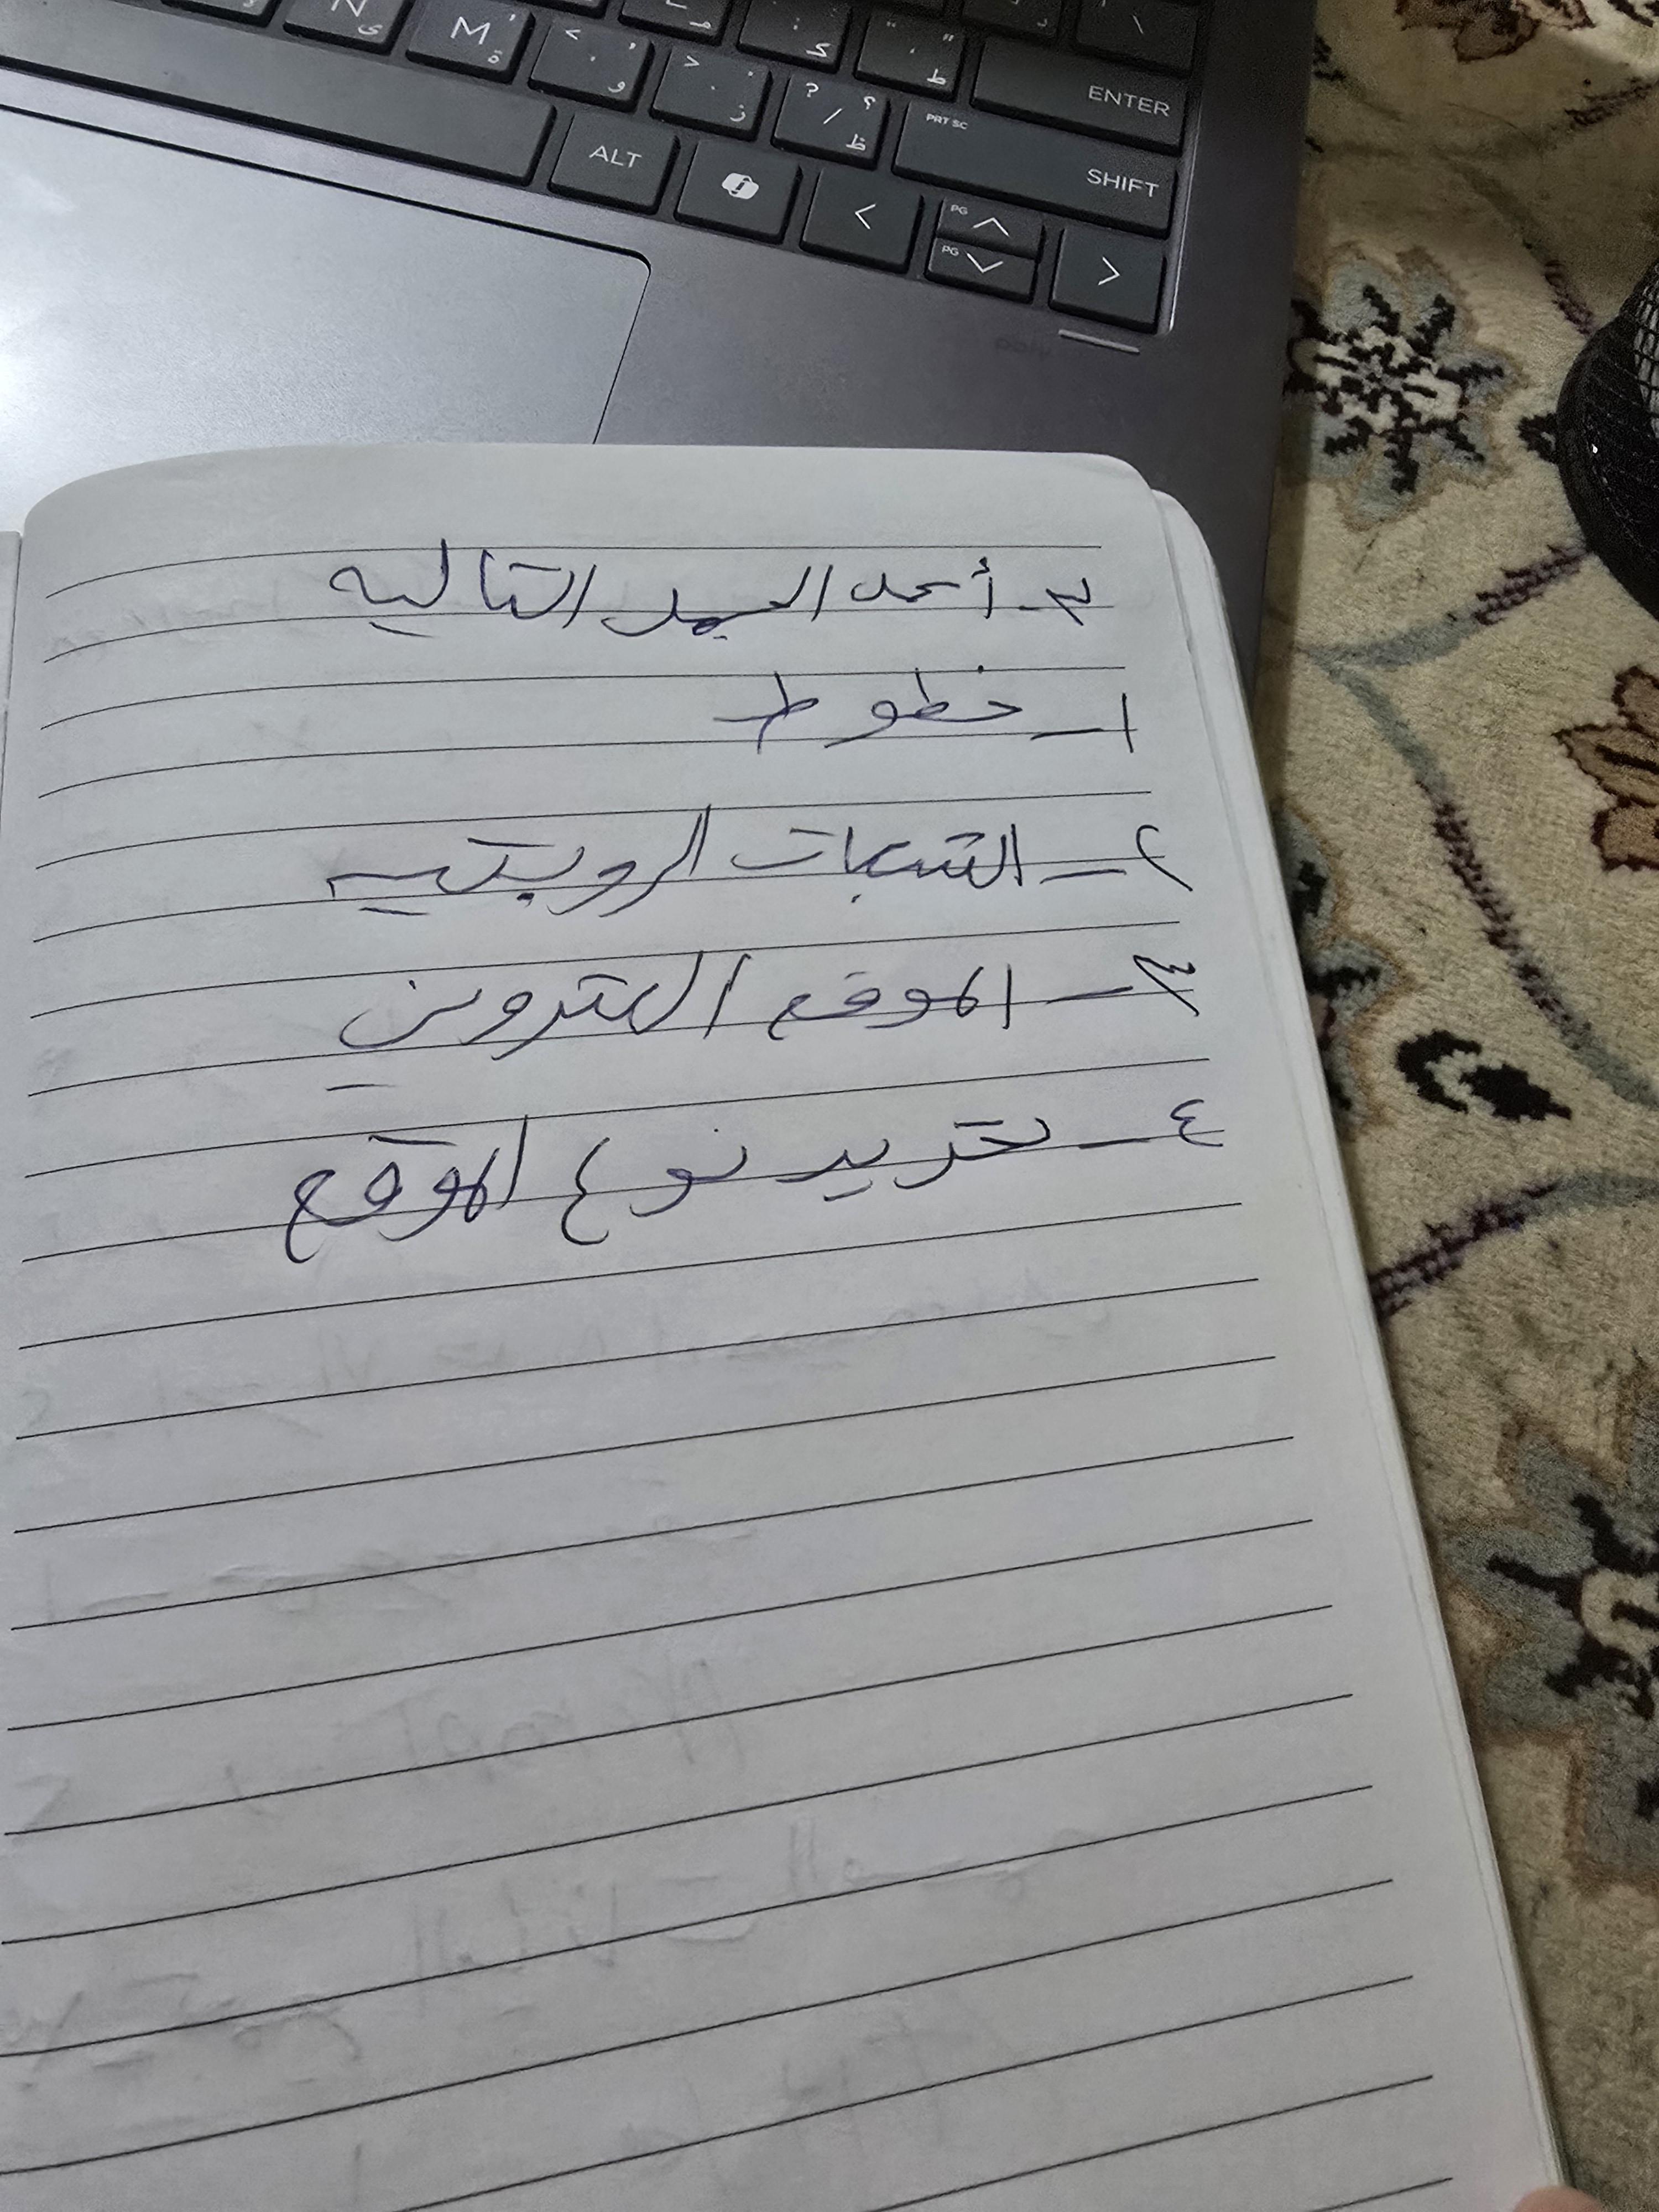 N ى
M ة
< , و
> . ز
? / ؟ ظ
" ' ط
ENTER
PRT SC
SHIFT
ALT
<
PG
PG
>
٣- أكمل الجمل التاليه
١- خطوط
٢- الشبكات
٣- الموقع
٤- تحديد نوع الموقع